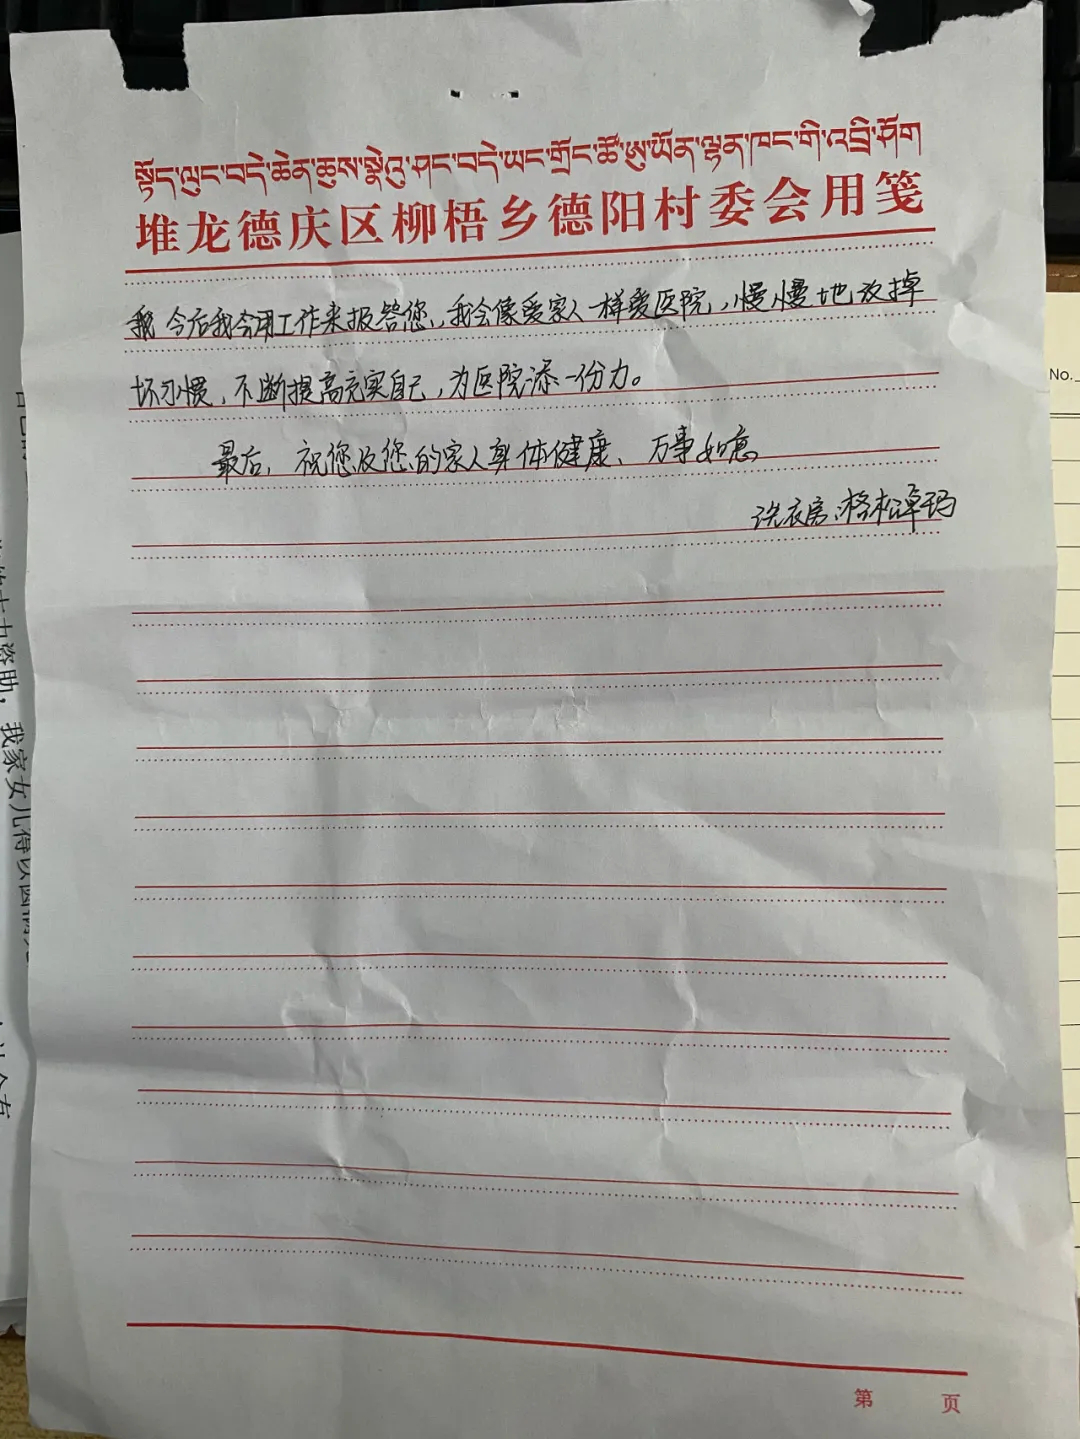 སྟོད་ལུང་བདེ་ཆེན་ཆུས་སྣེའུ་ཤང་བདེ་ཡང་གྲོང་ཚོ་ཨུ་ཡོན་ལྷན་ཁང་གི་འབྲི་ཤོག
堆龙德庆区柳梧乡德阳村委会用笺
今后我会用工作来报答您，我会像爱家人一样爱医院，慢慢地改掉
坏习惯，不断提高充实自己，为医院添一份力。
最后，祝您及您的家人身体健康、万事如意
洗衣房：格松卓玛
第 页
No.
力资助，我家女儿得以